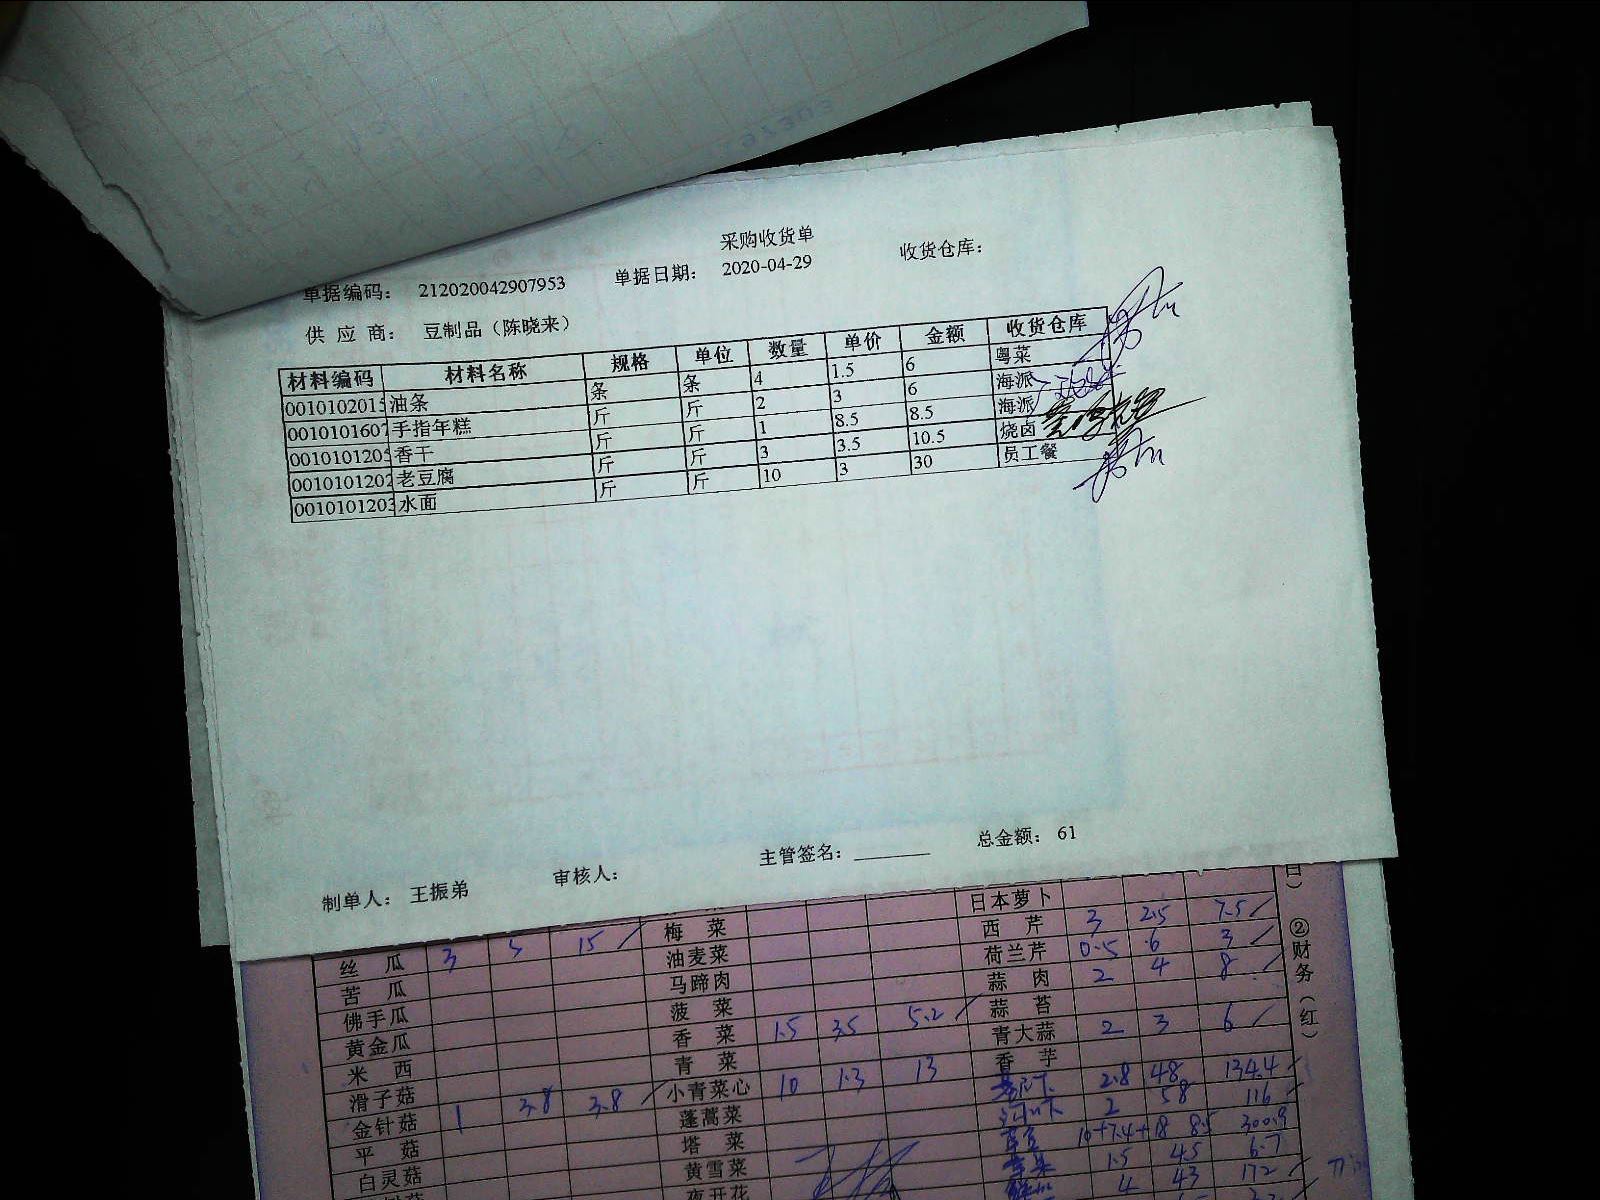 采购收货单
单据编码： 212020042907953 单据日期： 2020-04-29 收货仓库：
供 应 商： 豆制品（陈晓来）
材料编码 材料名称 规格 单位 数量 单价 金额 收货仓库
0010102015 油条 条 条 4 1.5 6 粤菜
0010101607 手指年糕 斤 斤 2 3 6 海派
0010101205 香干 斤 斤 1 8.5 8.5 海派
0010101202 老豆腐 斤 斤 3 3.5 10.5 烧卤
0010101203 水面 斤 斤 10 3 30 员工餐
制单人： 王振弟 审核人： 主管签名： 总金额： 61
日本萝卜
梅 菜 西 芹 3 2.5 7.5
丝 瓜 3 5 15 油麦菜 荷兰芹 0.5 6 3
苦 瓜 马蹄肉 蒜 肉 2 4 8
佛手瓜 菠 菜 蒜 苔
黄金瓜 香 菜 1.5 3.5 5.2 青大蒜 2 3 6
米 西 青 菜 香 芋
滑子菇 小青菜心 10 1.3 13 2.8 48 134.4
金针菇 1 3.8 3.8 蓬蒿菜 2 58 116
平 菇 塔 菜 10+7.4+18 8.5 300.9
白灵菇 黄雪菜 1.5 4.5 6.7
夜开花 4 43 172
②财务（红）